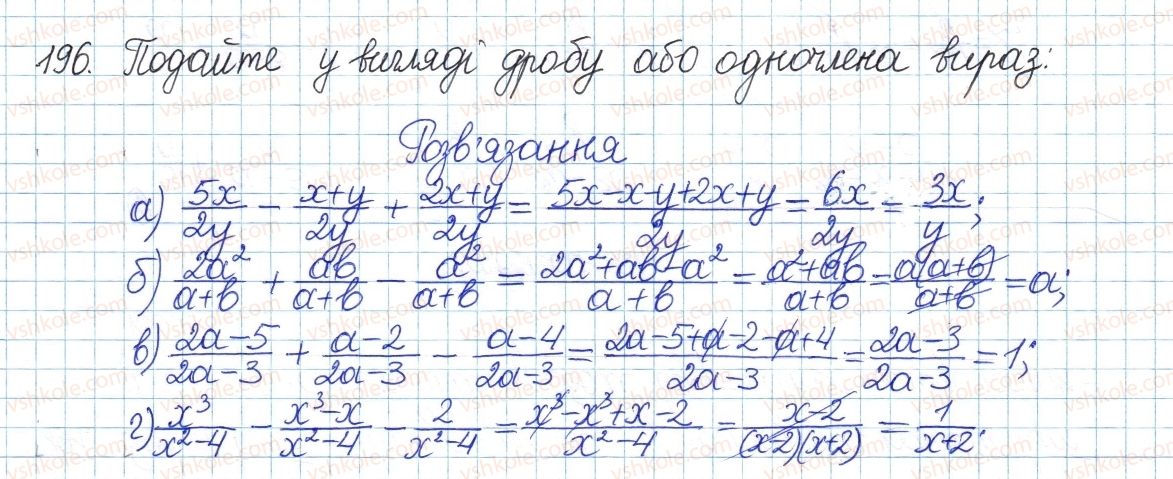 196. Подайте у вигляді дробу або одночлена вираз:
Розв'язання
а) 5x/2y − x+y/2y + 2x+y/2y = 5x−x−y+2x+y/2y = 6x/2y = 3x/y;
б) 2a²/a+b + ab/a+b − a²/a+b = 2a²+ab−a²/a+b = a²+ab/a+b = a(a+b)/a+b = a;
в) 2a−5/2a−3 + a−2/2a−3 − a−4/2a−3 = 2a−5+a−2−a+4/2a−3 = 2a−3/2a−3 = 1;
г) x³/x²−4 − x³−x/x²−4 − 2/x²−4 = x³−x³+x−2/x²−4 = x−2/(x−2)(x+2) = 1/x+2.